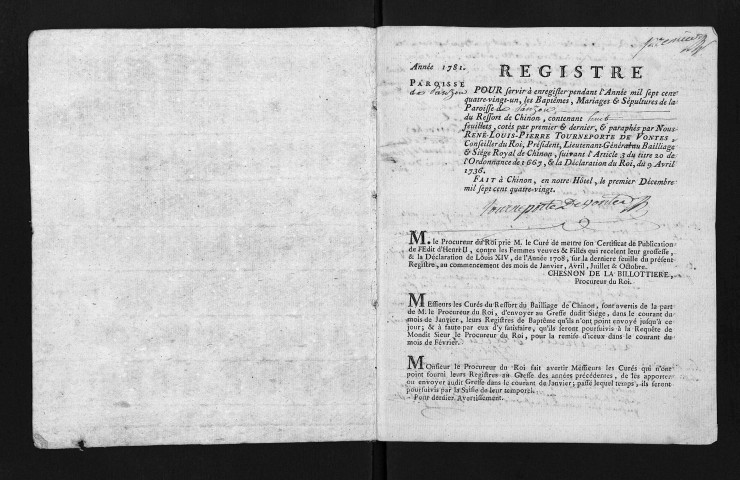 Année 1781.
REGISTRE
PAROISSE
de Panzou
POUR servir à enregister pendant l'Année mil sept cent
quatre-vingt-un, les Baptêmes, Mariages & Sépultures de la
Paroisse de Panzou
du Ressort de Chinon, contenant huit
feuillets, cotés par premier & dernier, & paraphés par Nous
RENÉ-LOUIS-PIERRE TOURNEPORTE DE VONTES,
Conseiller du Roi, Président, Lieutenant-Général au Bailliage
& Siége Royal de Chinon, suivant l'Article 3 du titre 20 de
l'Ordonnance de 1667, & la Déclaration du Roi, du 9 Avril
1736.
FAIT à Chinon, en notre Hôtel, le premier Décembre
mil sept cent quatre-vingt.
Tourneporte De Vontes
M. le Procureur du Roi prie M. le Curé de mettre son Certificat de Publication
de l'Edit d'Henri II, contre les Femmes veuves & Filles qui recelent leur grossesse,
& la Déclaration de Louis XIV, de l'Année 1708, sur la derniere feuille du présent
Registre, au commencement des mois de Janvier, Avril, Juillet & Octobre.
CHESNON DE LA BILLOTTIERE,
Procureur du Roi.
MEssieurs les Curés du Ressort du Bailliage de Chinon, sont avertis de la part
de M. le Procureur du Roi, d'envoyer au Greffe dudit Siége, dans le courant du
mois de Janvier, leurs Registres de Baptême qu'ils n'ont point envoyé jusqu'à ce
jour; & à faute par eux d'y satisfaire, qu'ils seront poursuivis à la Requête de
Mondit Sieur le Procureur du Roi, pour la remise d'iceux dans le courant du
mois de Février.
MOnsieur le Procureur du Roi fait avertir Messieurs les Curés qui n'ont
point fourni leurs Registres au Greffe des années précédentes, de les apporter
ou envoyer audit Greffe dans le courant de Janvier; passé lequel temps, ils seront
poursuivis par la Saisie de leur temporel.
Pour dernier Avertissement.